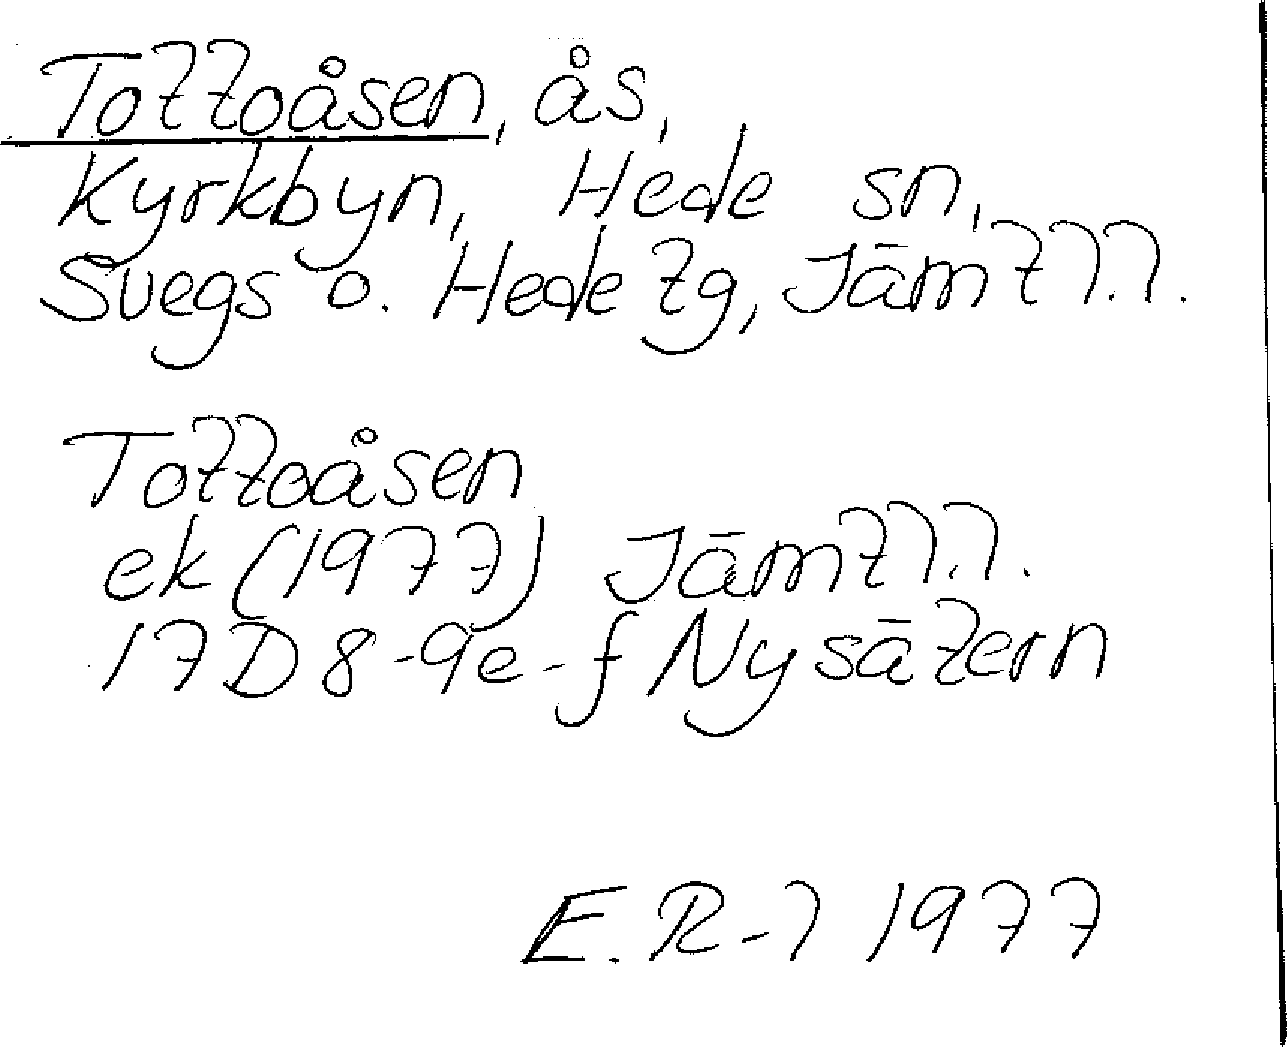 Tottoåsen, ås,
Kyrkbyn, Hede sn,
Svegs o. Hede tg, Jämtl.l.
Tottoåsen
ek (1977) Jämtl.l.
17D 8-9e-f Nysätern
E. R-l 1977